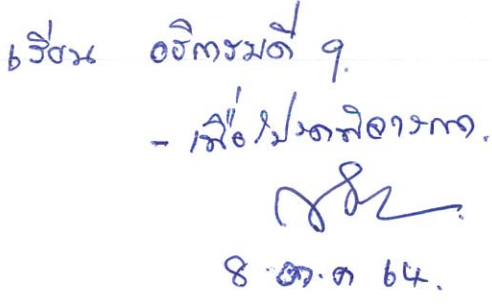 เรียน อธิการบดี ฯ
- เพื่อโปรดพิจารณา.
8 ต.ค 64.